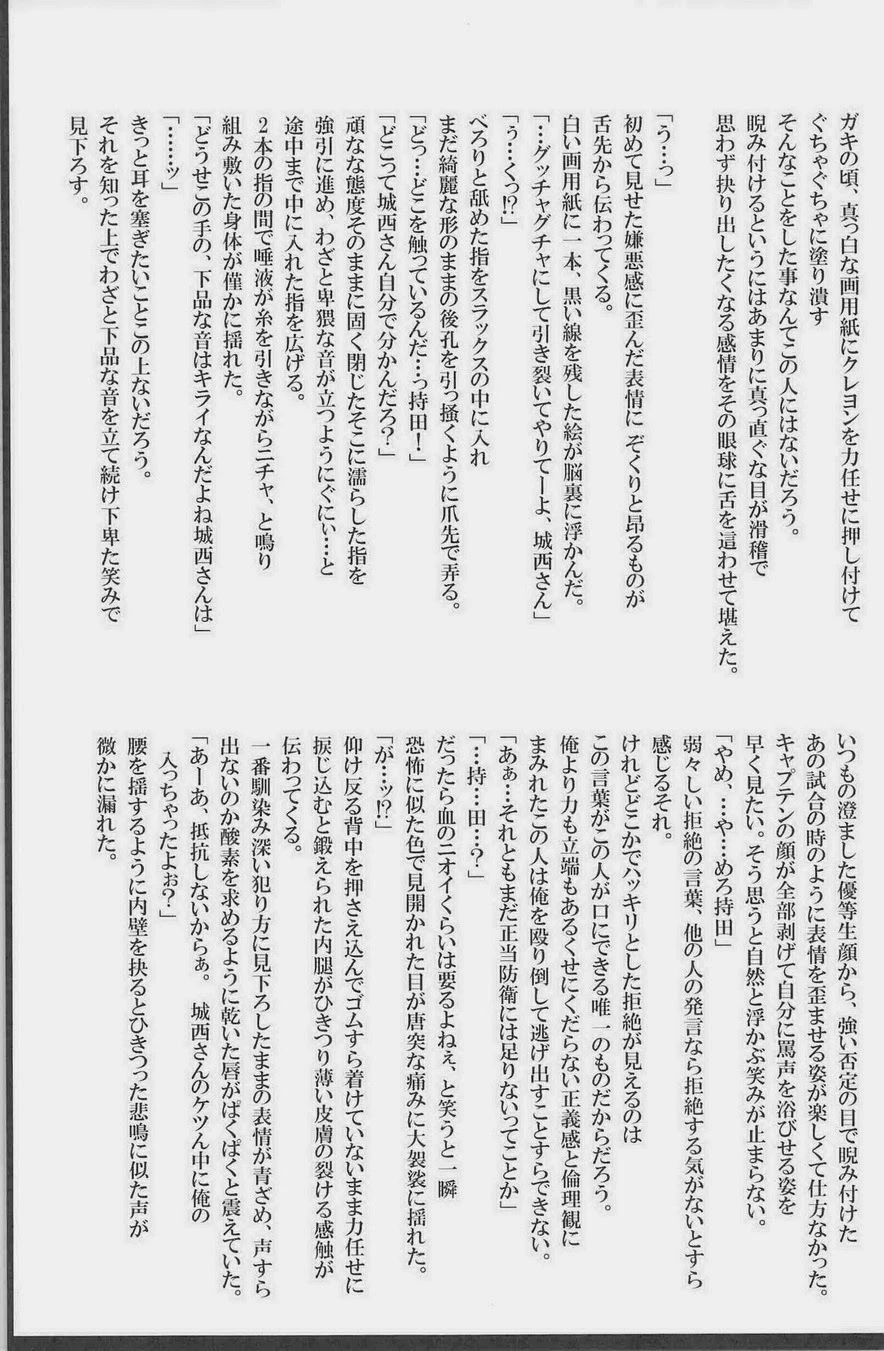 ガキの頃、真っ白な画用紙にクレヨンを力任せに押し付けて
ぐちゃぐちゃに塗り潰す
そんなことをした事なんてこの人にはないだろう。
睨み付けるというにはあまりに真っ直ぐな目が滑稽で
思わず抉り出したくなる感情をその眼球に舌を這わせて堪えた。
「う…っ」
初めて見せた嫌悪感に歪んだ表情に ぞくりと昂るものが
舌先から伝わってくる。
白い画用紙に一本、黒い線を残した絵が脳裏に浮かんだ。
「…グッチャグチャにして引き裂いてやりてーよ、城西さん」
「ぅ…くっ!?」
べろりと舐めた指をスラックスの中に入れ
まだ綺麗な形のままの後孔を引っ掻くように爪先で弄る。
「どっ…どこを触っているんだ…っ持田！」
「どこって城西さん自分で分かんだろ？」
頑なな態度そのままに固く閉じたそこに濡らした指を
強引に進め、わざと卑猥な音が立つようにぐにぃ…と
途中まで中に入れた指を広げる。
2本の指の間で唾液が糸を引きながらニチャ、と鳴り
組み敷いた身体が僅かに揺れた。
「どうせこの手の、下品な音はキライなんだよね城西さんは」
「……ッ」
きっと耳を塞ぎたいことこの上ないだろう。
それを知った上でわざと下品な音を立て続け下卑た笑みで
見下ろす。
いつもの澄ました優等生顔から、強い否定の目で睨み付けた
あの試合の時のように表情を歪ませる姿が楽しくて仕方なかった。
キャプテンの顔が全部剥げて自分に罵声を浴びせる姿を
早く見たい。そう思うと自然と浮かぶ笑みが止まらない。
「やめ、…や…めろ持田」
弱々しい拒絶の言葉、他の人の発言なら拒絶する気がないとすら
感じるそれ。
けれどどこかでハッキリとした拒絶が見えるのは
この言葉がこの人が口にできる唯一のものだからだろう。
俺より力も立端もあるくせにくだらない正義感と倫理観に
まみれたこの人は俺を殴り倒して逃げ出すことすらできない。
「あぁ…それともまだ正当防衛には足りないってことか」
「…持…田…？」
だったら血のニオイくらいは要るよねぇ、と笑うと一瞬
恐怖に似た色で見開かれた目が唐突な痛みに大袈裟に揺れた。
「が…ッ!?」
仰け反る背中を押さえ込んでゴムすら着けていないまま力任せに
捩じ込むと鍛えられた内腿がひきつり薄い皮膚の裂ける感触が
伝わってくる。
一番馴染み深い犯り方に見下ろしたままの表情が青ざめ、声すら
出ないのか酸素を求めるように乾いた唇がぱくぱくと震えていた。
「あーあ、抵抗しないからぁ。 城西さんのケツん中に俺の
入っちゃったよぉ？」
腰を揺するように内壁を抉るとひきつった悲鳴に似た声が
微かに漏れた。